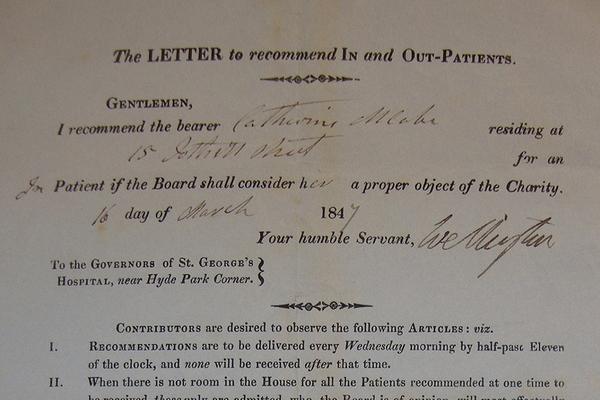 The LETTER to recommend IN and OUT-PATIENTS.
GENTLEMEN,
I recommend the bearer Catherine McCabe residing at
15 Street for an
In Patient if the Board shall consider her a proper object of the Charity.
16 day of March 1847
Your humble Servant, Wellington
To the GOVERNORS of ST. GEORGE'S
HOSPITAL, near Hyde Park Corner.
CONTRIBUTORS are desired to observe the following ARTICLES: viz.
I. RECOMMENDATIONS are to be delivered every Wednesday morning by half-past Eleven
of the clock, and none will be received after that time.
II. When there is not room in the House for all the Patients recommended at one time to
be received, those only are admitted, who, the Board is of opinion, will most effectually